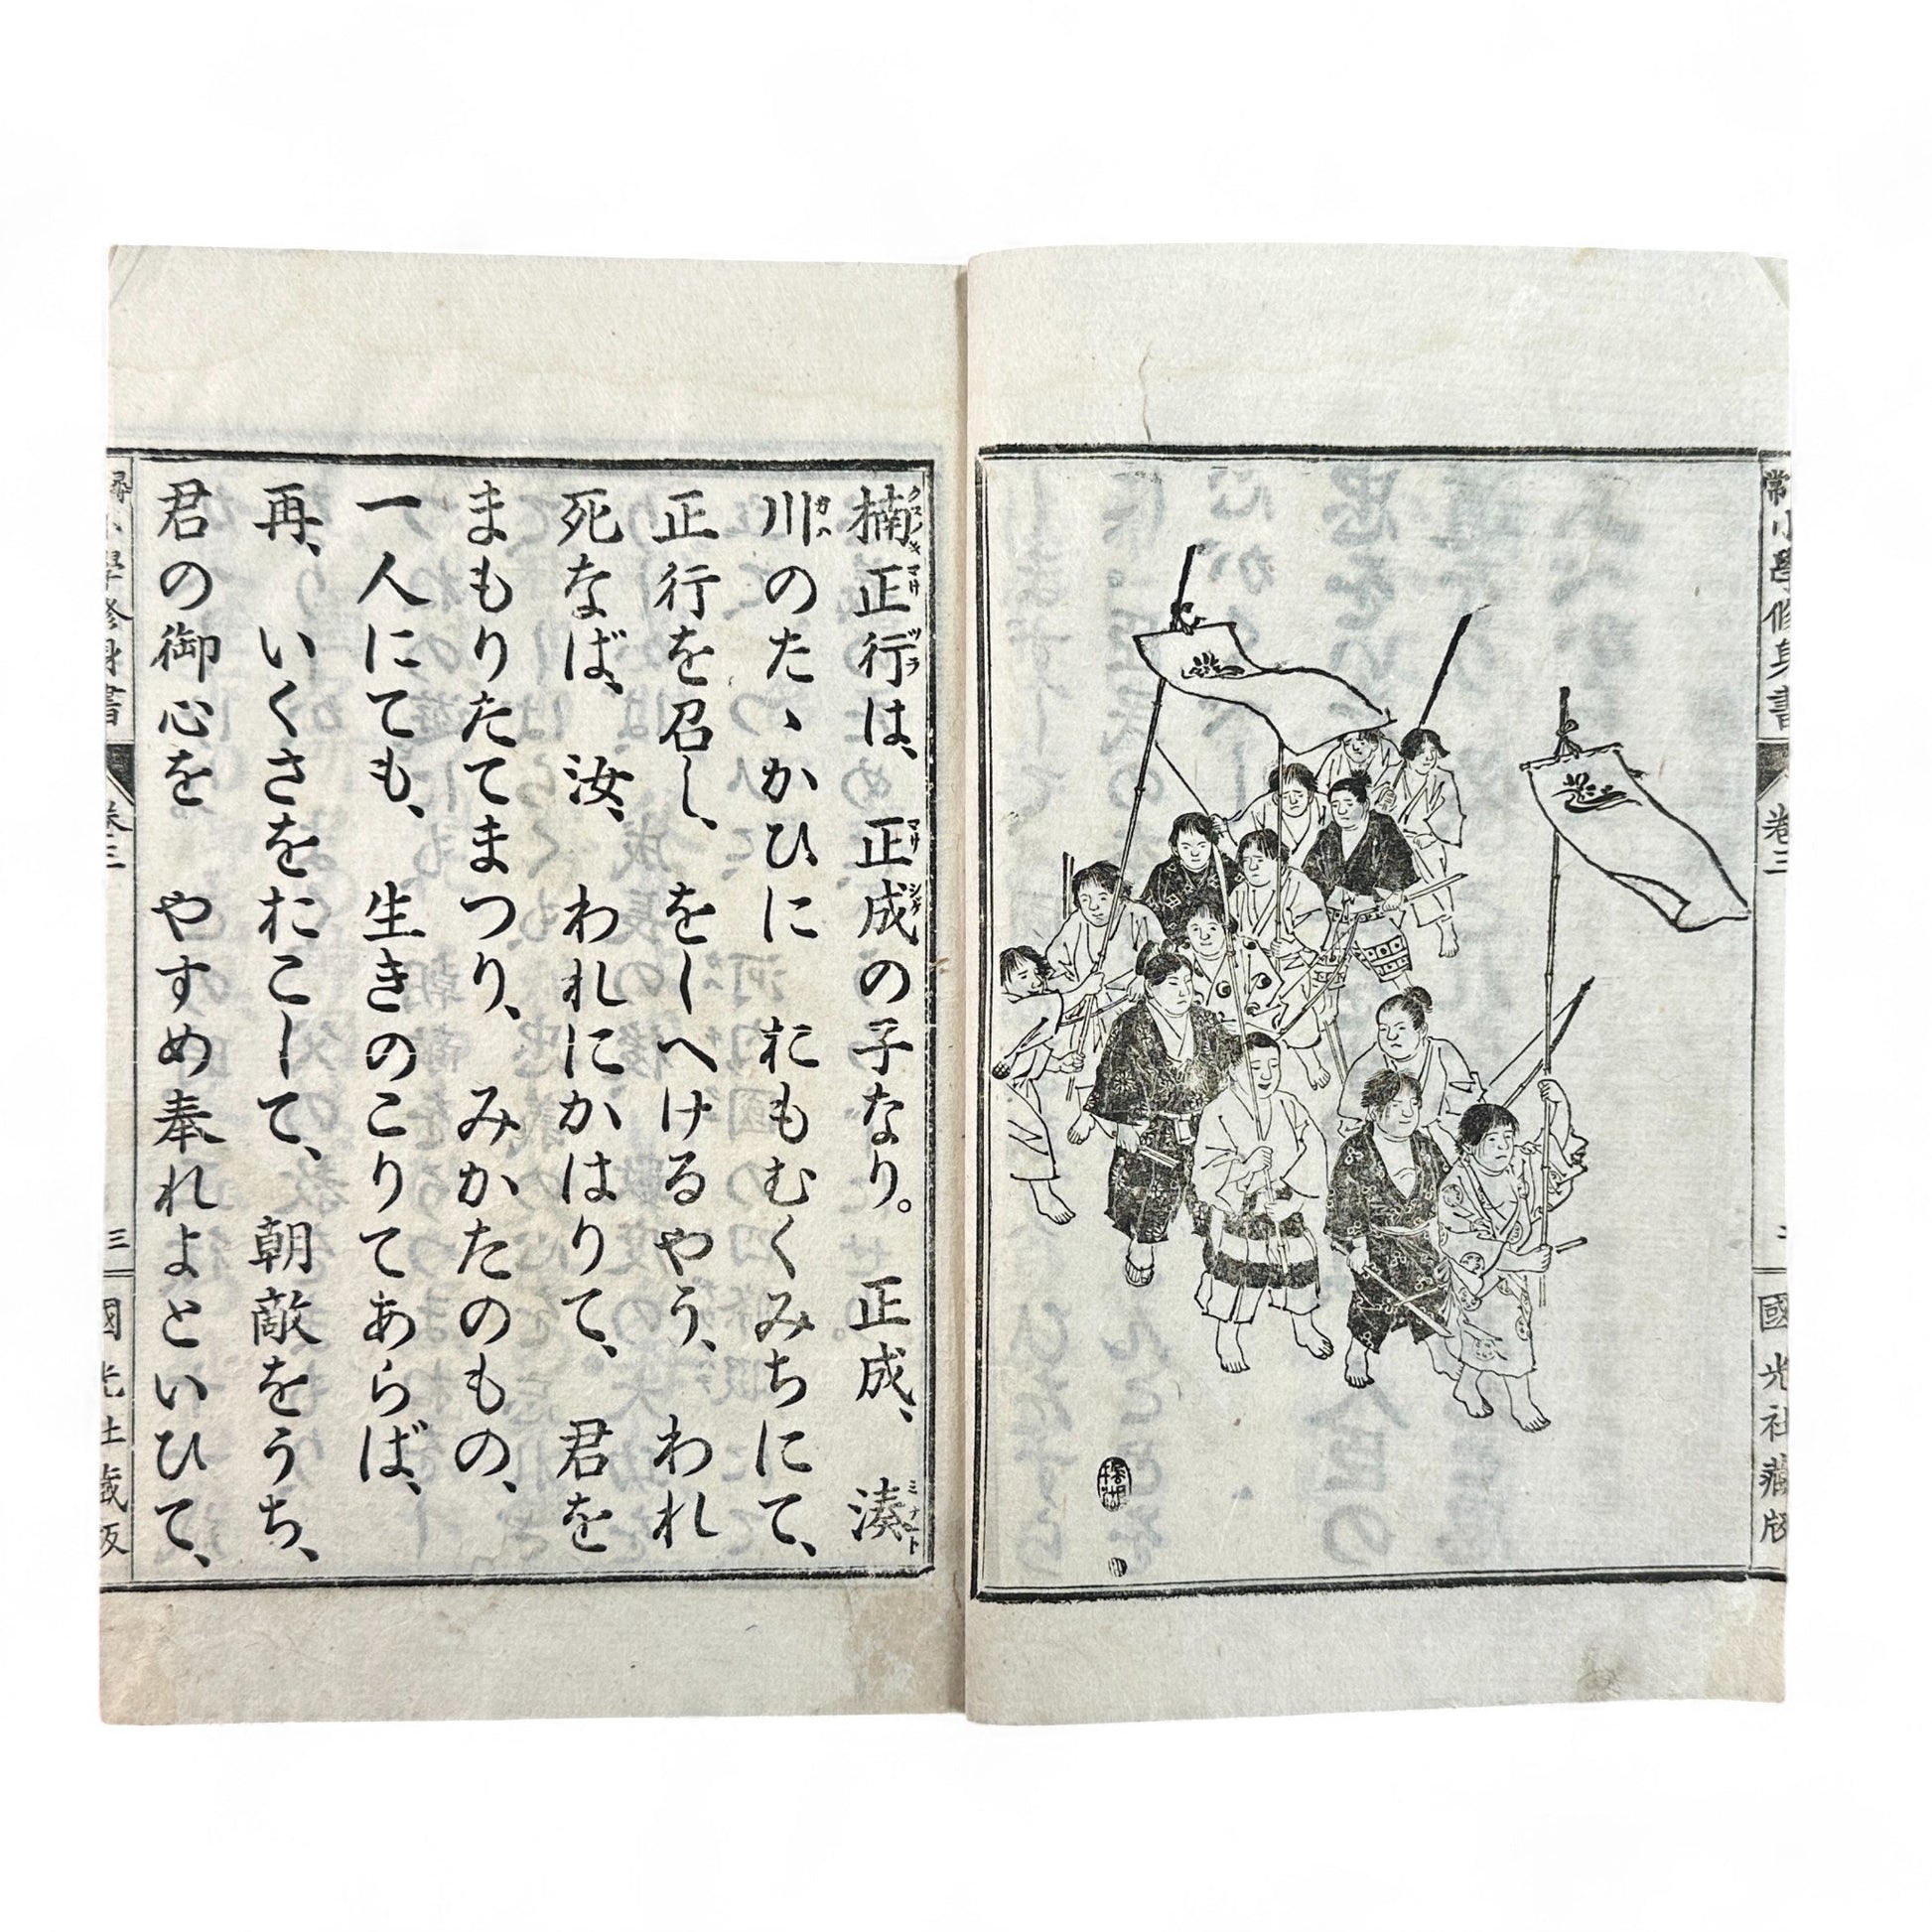 常小學修身書
卷三
國光社藏版
楠正行は、正成の子なり。正成、湊
クスノキマサツラ マサシゲ ミナト
川のたゝかひに おもむくみちにて、
ガハ
正行を召し、をしへけるやう、われ
死なば、汝、われにかはりて、君を
まもりたてまつり、みかたのもの、
一人にても、生きのこりてあらば、
再、いくさをおこして、朝敵をうち、
君の御心を やすめ奉れよといひて、
小學修身書
卷三
三
國光社藏版